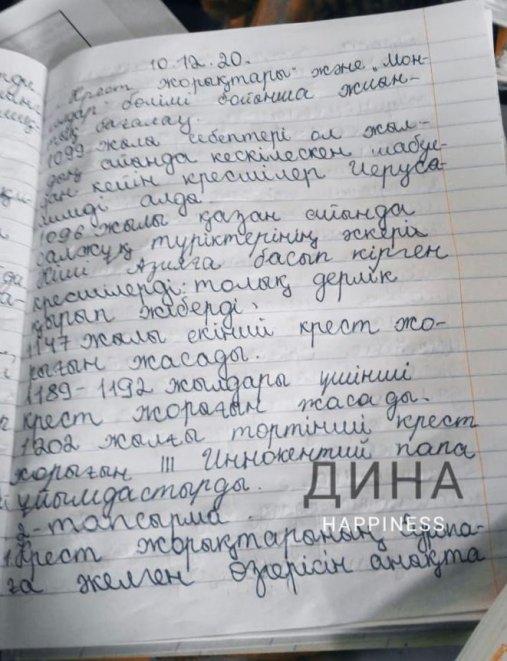 10.12.20.
"Крест жорықтары" және "Мон-
ғолдар" бөлімі бойынша жиын-
тық бағалау.
1099 жылы себептері ол жыл-
дың айында кескілескен шабуыл-
дан кейін кресшілер Иеруса-
лимді алды
1096 жылы қазан айында
салжұқ түріктерінің әскері
Кіші Азияға басып кірген
кресшілерді толық дерлік
қырып жіберді.
1147 жылы екінші крест жо-
рығын жасады.
1189-1192 жылдары үшінші
крест жорығын жасады.
1202 жылғы төртінші крест
жорығын III Иннокентий папа
ұйымдастырды.
ДИНА
HAPPINESS
2-тапсырма
1. Крест жорықтарының
ға желген өзгерісін анықта